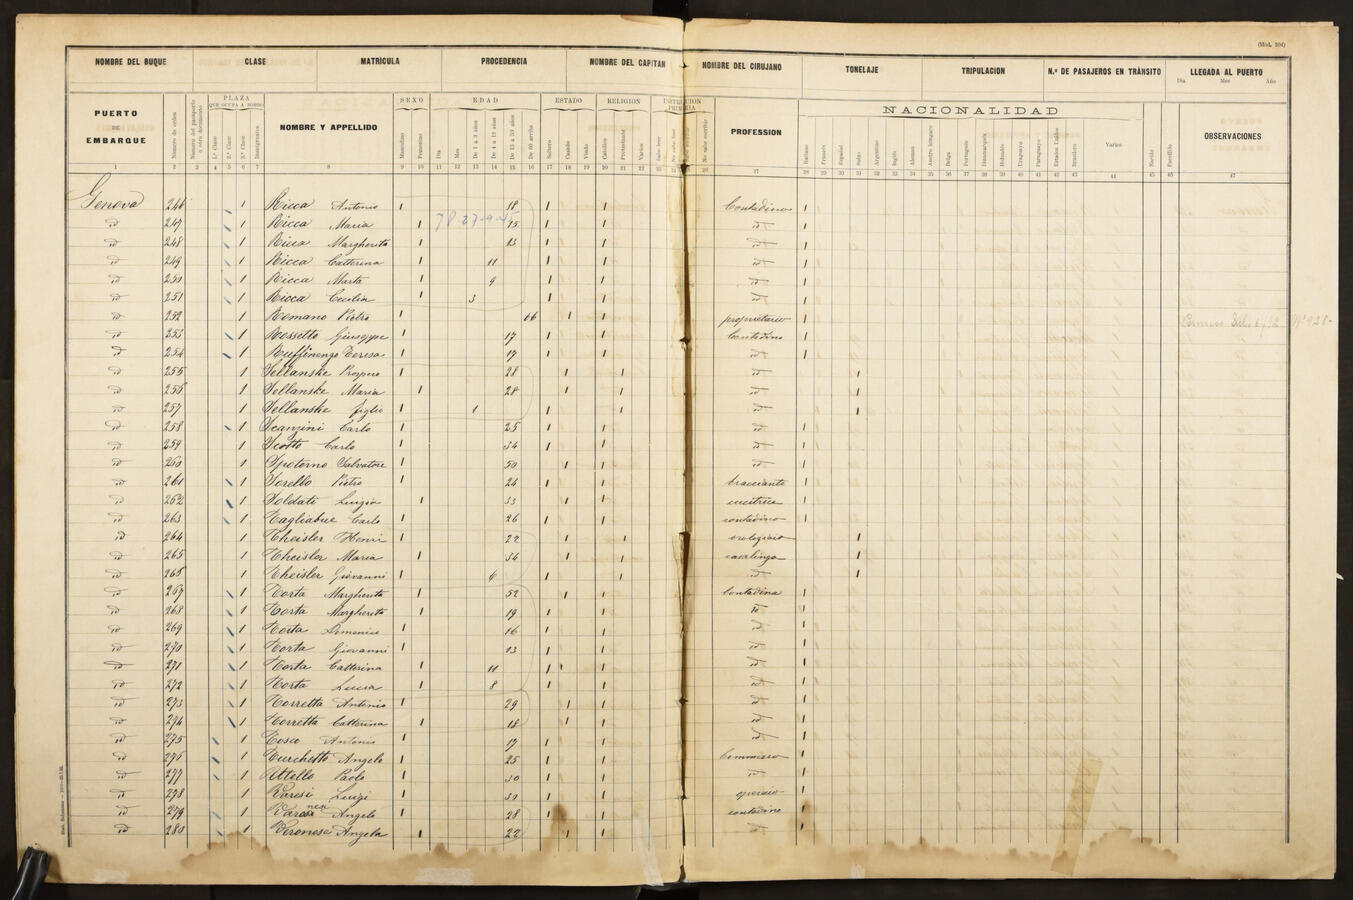 (Mod. 204)
NOMBRE DEL BUQUE CLASE MATRÍCULA PROCEDENCIA NOMBRE DEL CAPITAN NOMBRE DEL CIRUJANO TONELAJE TRIPULACION N.º DE PASAJEROS EN TRÁNSITO LLEGADA AL PUERTO
Dia Mes Año
PUERTO DE EMBARQUE Número de orden Número del pasaporte u otro documento PLAZA QUE OCUPA A BORDO 1.ª Clase 2.ª Clase 3.ª Clase Inmigrantes NOMBRE Y APPELLIDO SEXO Masculino Femenino EDAD Dia Mes De 1 a 3 años De 4 a 12 años De 13 a 59 años De 60 arriba ESTADO Soltero Casado Viudo RELIGION Católico Protestante Varios INSTRUCCION PRIMARIA Sabe leer No sabe leer No sabe escribir PROFESSION NACIONALIDAD Italiano Francés Español Suizo Argentino Inglés Aleman Austro húngaro Belga Portugués Dinamarqués Holandés Uruguayo Paraguayo Estados Unidos Brasilero Varios Nacido Fallecido OBSERVACIONES
1 2 3 4 5 6 7 8 9 10 11 12 13 14 15 16 17 18 19 20 21 22 23 26 27 28 29 30 31 32 33 34 35 36 37 38 39 40 41 42 43 44 45 46 47
Genova 246 Ricca Antonio 18 Contadino
id 247 Ricca Maria 15 id
id 248 Ricca Margherita 13 id
id 249 Ricca Catterina 11 id
id 250 Ricca Marta 9 id
id 251 Ricca Cecilia 3 id
id 252 Romano Pietro 66 proprietario
id 253 Rossetto Giuseppe 17 Contadino
id 254 Ruffinengo Teresa 17 id
id 255 Sellanske Prospero 28 id
id 256 Sellanske Maria 28 id
id 257 Sellanske figlio 1 id
id 258 Scanzini Carlo 25 id
id 259 Scotto Carlo 34 id
id 260 Spotorno Salvatore 50 id
id 261 Sorello Pietro 24 bracciante
id 262 Soldati Luigia 33 cucitrice
id 263 Tagliabue Carlo 26 contadino
id 264 Theisler Henri 22 orologiaro
id 265 Theisler Maria 34 casalinga
id 265 Theisler Giovanni 6 id
id 267 Torta Margherita 52 Contadina
id 268 Torta Margherita 19 id
id 269 Torta Domenico 16 id
id 270 Torta Giovanni 13 id
id 271 Torta Catterina 11 id
id 272 Torta Lucia 8 id
id 273 Torretta Antonio 29 id
id 274 Torretta Catterina 18 id
id 275 Tosco Antonio 17 id
id 276 Turchetto Angelo 25 Commisso
id 277 Uttello Paolo 30 id
id 278 Varesi Luigi 30 operaio
id 279 Varesi Angelo 28 contadino
id 280 Veronesi Angela 22 id